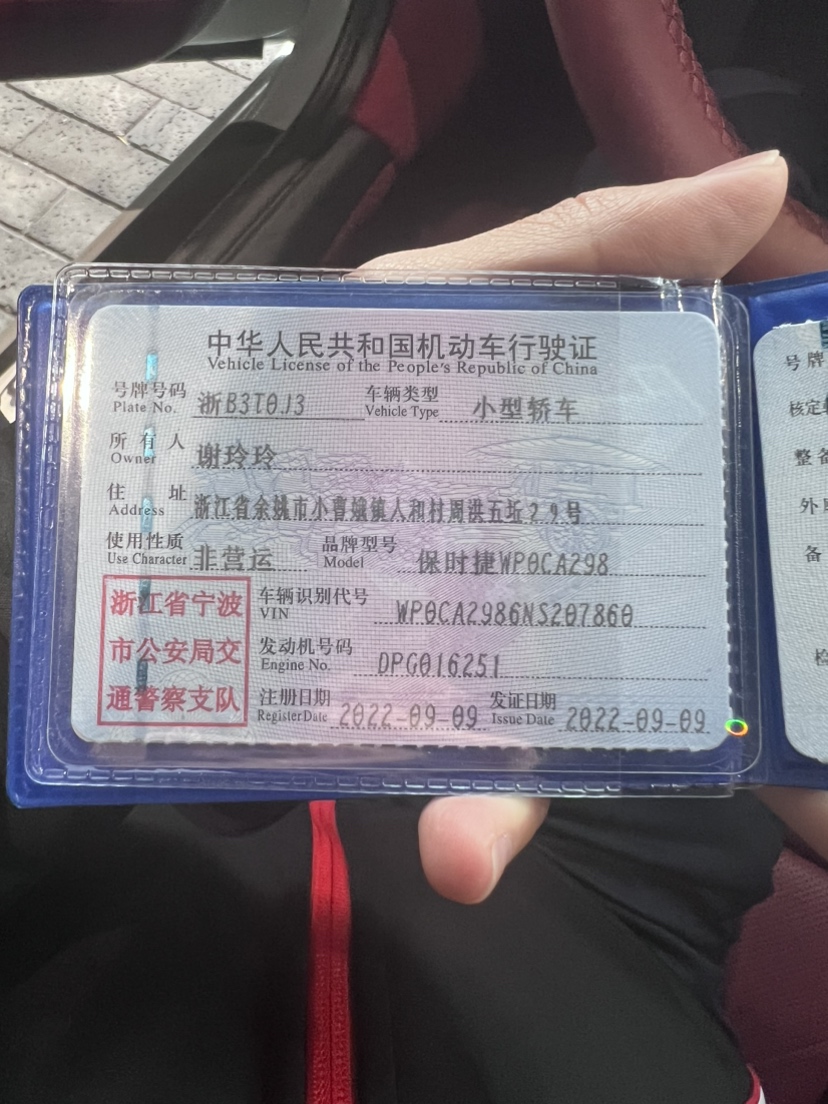 中华人民共和国机动车行驶证
Vehicle License of the People's Republic of China
号牌号码 浙B3T0J3 车辆类型 小型轿车
Plate No. Vehicle Type
所有人 谢玲玲
Owner
住址 浙江省余姚市小曹娥镇人和村周洪五坵29号
Address
使用性质 非营运 品牌型号 保时捷WP0CA298
Use Character Model
浙江省宁波
市公安局交
通警察支队
车辆识别代号 WP0CA2986NS207860
VIN
发动机号码 DPG016251
Engine No.
注册日期 2022-09-09 发证日期 2022-09-09
Register Date Issue Date
号牌
核定
整备
外
备
检